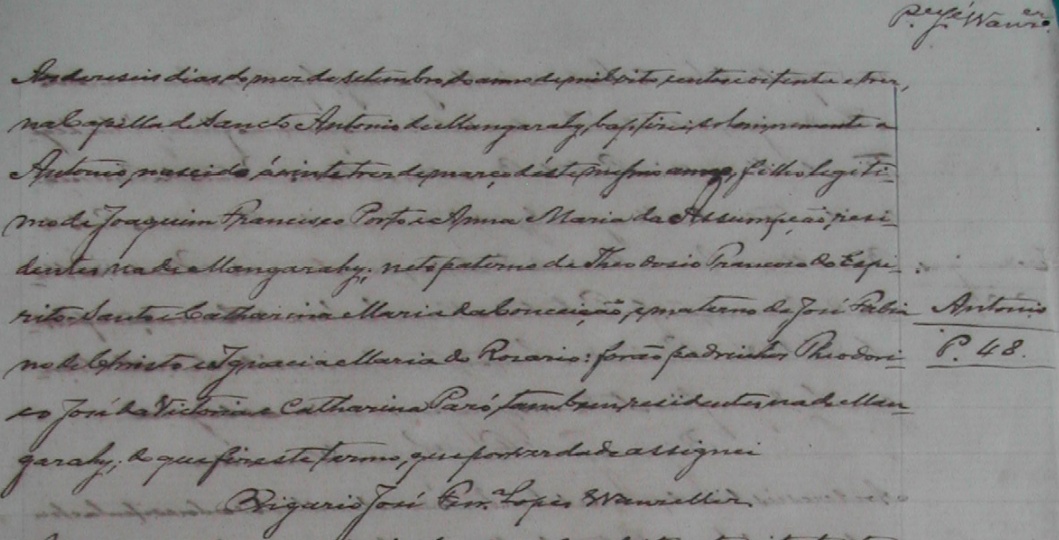 P.e J.é Wanzer.
Aos deseseis dias do mez de setembro do anno de mil oito centos e oitenta e trez,
na Capella de Sancto Antonio de Mangarahy, baptisei solemnemente a
Antonio, nascido á vinte trez de março d'este mesmo anno, filho legiti-
mo de Joaquim Francisco Porto e Anna Maria da Assumpção, resi-
dentes na de Mangarahy; neto paterno de Theodosio Francisco do Espi-
rito Santo e Catharina Maria da Conceição, e materno de José Fabia
no de Christo e Ignacia Maria do Rozario: forão padrinhos Theodori-
co José da Victoria e Catharina Paró, tambem residentes na de Man-
garahy; do que fiz este termo, que por verdade assignei
Vigario José Lopes Wanzeller.
Antonio
P. 48.